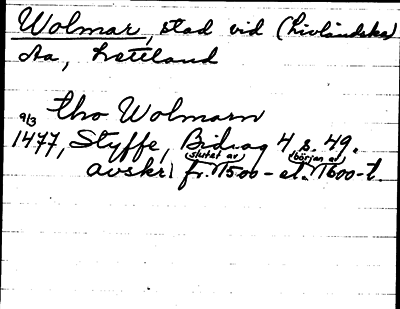 Wolmar, stad vid (Livländska)
Aa, Lettland
tho Wolmarn
9/3
1477, Styffe, Bidrag 4, s. 49.
slutet av början av
avskr. fr. 1500- el. 1600-t.